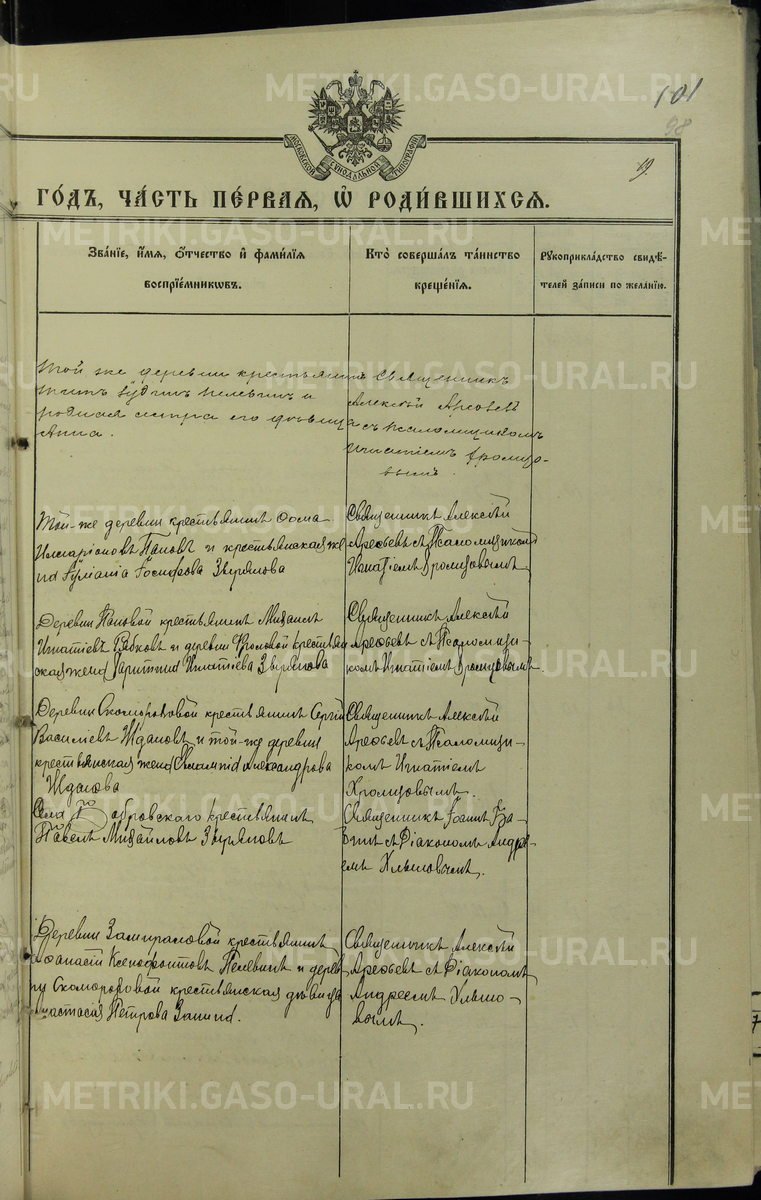 METRIKI.GASO-URAL.RU
101
98
МОСКОВСКОЙ СѴНОДАЛЬНОЙ ТИПОГРАФІИ
19.
ГО́ДЪ, ЧА́СТЬ ПЕ́РВАЯ, Ѡ҆ РОДИ́ВШИХСЯ.
Зва́нїе, и҆́мя, ѻ҆́тчество и҆ фами́лїя
воспрїе́мникѡвъ.
Кто̀ соверша́лъ та́инство
креще́нїя.
Рукоприкла́дство свидѣ́-
телей за́писи по жела́нїю.
Той же деревни крестьянинъ
Титъ Пелевинъ и
родная сестра его дѣвица
Анна.
Священникъ
Алексѣй Арефьев
съ псаломщикомъ
Игнатіемъ Хромцо-
вымъ.
Той-же деревни крестьянинъ Ѳома
Илларіоновъ Пановъ и крестьянская же
на Іуліанія Іосифова Звѣрянова
Священникъ Алексѣй
Арефьевъ съ Псаломщикомъ
Игнатіемъ Хромцовымъ
Деревни Пановой крестьянинъ Михаилъ
Игнатіевъ Рябковъ и деревни Фроловой крестьян
ская жена Харитина Игнатіева Звѣрянова
Священникъ Алексѣй
Арефьевъ съ Псаломщи-
комъ Игнатіемъ Хромцовымъ
Деревни Скоморовой крестьянинъ Сергій
Василіевъ Ждановъ и той-же деревни
крестьянская жена Евлампія Александрова
Жданова
Священникъ Алексѣй
Арефьевъ съ Псаломщи-
комъ Игнатіемъ
Хромцовымъ.
Села Бобровского крестьянинъ
Павелъ Михайловъ Звѣряновъ
Священникъ Іоаннъ
съ Діакономъ Андре-
емъ
Деревни крестьянинъ
Аѳанасій Ксенофонтовъ Пелевинъ и дерев
ни Скоморовой крестьянская дѣвица
Анастасія Петрова Запина.
Священникъ Алексѣй
Арефьевъ съ Діакономъ
Андреемъ